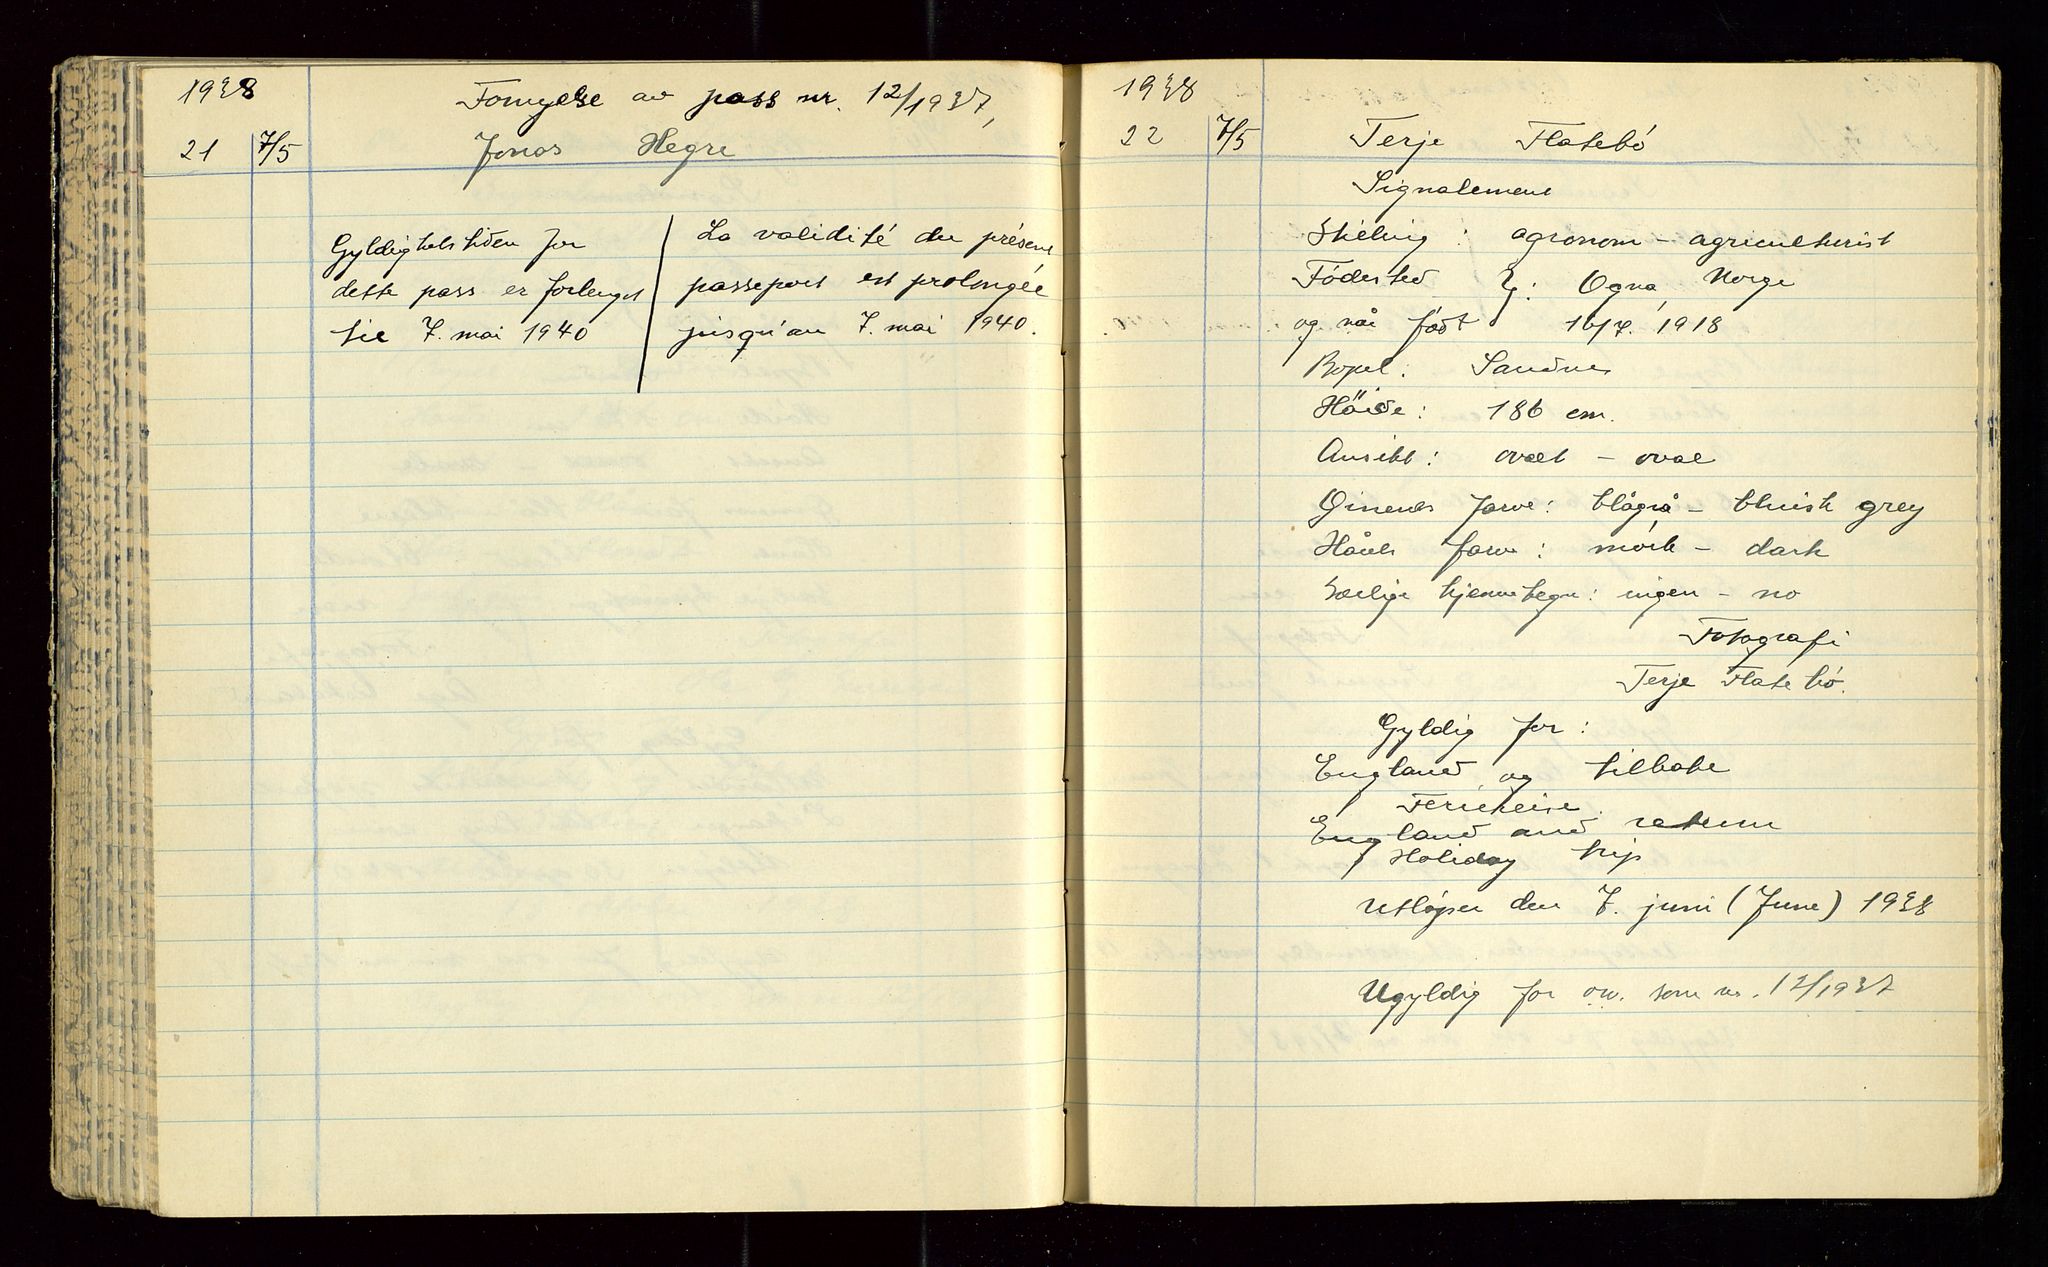 1938
Fornyelse av pass nr. 12/1937,
21 7/5 Jonas Hegre
Gyldighetstiden for
dette pass er forlenget
til 7. mai 1940
La validité du présent
passeport est prolongée
jusqu'au 7. mai 1940.
1938
22 7/5 Terje Flatebö
Signalement
Stilling: agronom - agriculturist
Födested Ogna, Norge
og når født 16/7. 1918
Bopel: Sandnes
Höide: 186 cm.
Ansikt: ovalt - oval
Öinenes farve: blågrå - bluish grey
Hårets farve: mörk - dark
Særlige kjennetegn: ingen - no
Fotografi
Terje Flatebö.
Gyldig for:
England og tilbake
Feriereise.
England and return
Holiday trip
Utløper den 7. juni (June) 1938
Ugyldig for som nr. 12/1937